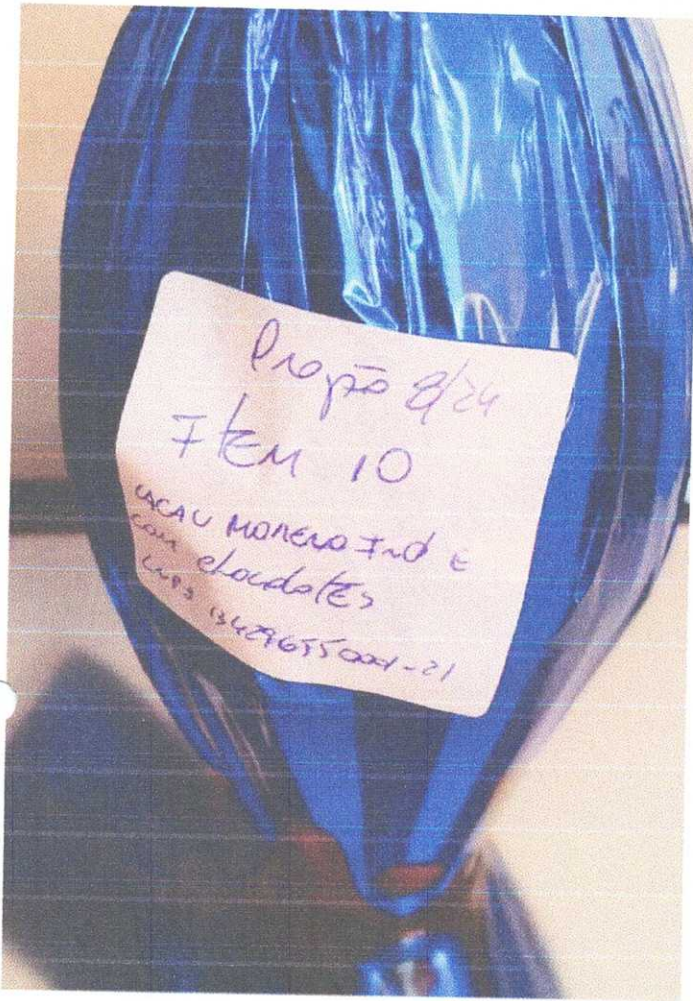 Pregão 8/24
Item 10
CACAU MORENO IND E
com chocolates
CNPJ 13429655 0001-21